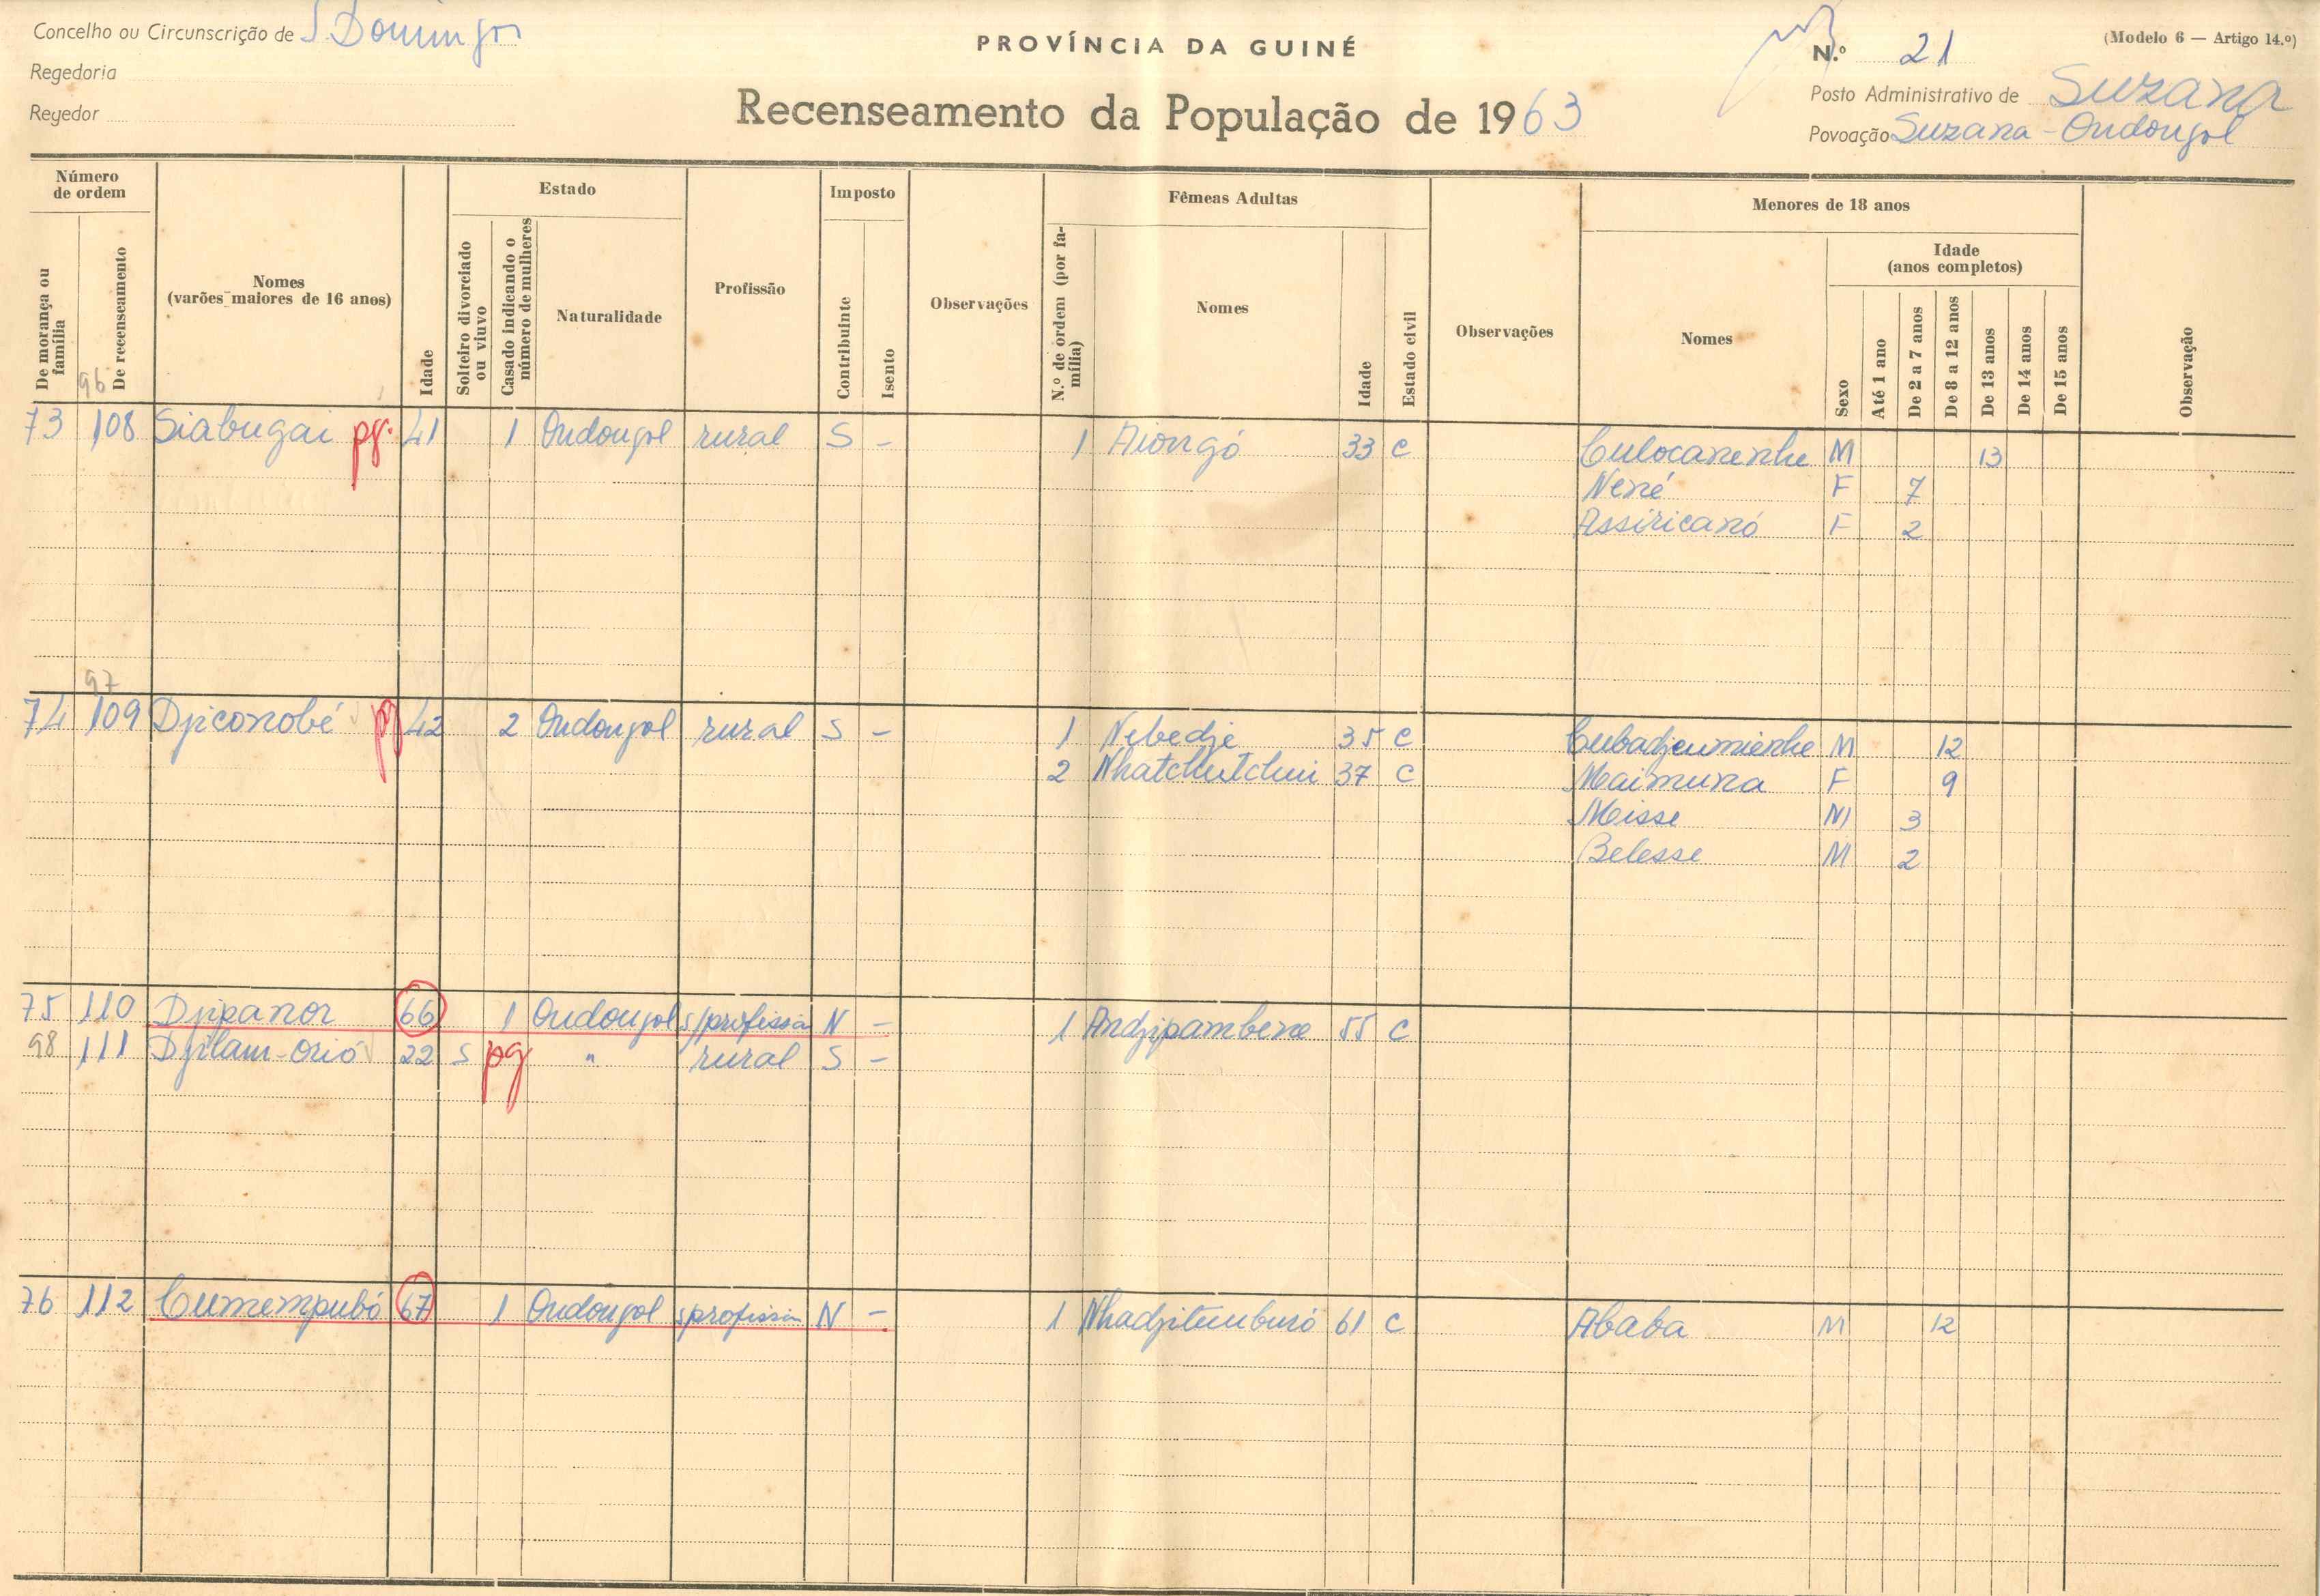 Concelho ou Circunscrição de S. Domingos
Regedoria
Regedor
PROVÍNCIA DA GUINÉ
Recenseamento da População de 1963
N.º 21
(Modelo 6 — Artigo 14.º)
Posto Administrativo de Suzana
Povoação Suzana - Ondongol
Número de ordem
De morança ou família
De recenseamento
Nomes
(varões maiores de 16 anos)
Idade
Estado
Solteiro divorciado ou viuvo
Casado indicando o número de mulheres
Naturalidade
Profissão
Imposto
Contribuinte
Isento
Observações
Fêmeas Adultas
N.º de ordem (por família)
Nomes
Idade
Estado civil
Observações
Menores de 18 anos
Nomes
Sexo
Idade
(anos completos)
Até 1 ano
De 2 a 7 anos
De 8 a 12 anos
De 13 anos
De 14 anos
De 15 anos
Observação
96
73 108 Siabugai pg. 41 1 Ondongol rural S - 1 Aiongó 33 C Culocanenhe M 13
Nené F 7
Assiricanó F 2
97
74 109 Djiconobé pg 42 2 Ondongol rural S - 1 Nebedje 35 C Cubadjeumienhe M 12
2 Nhatchutchui 37 C Maimuna F 9
Moisse M 3
Belesse M 2
75 110 Djipanor 66 1 Ondongol s/profissão N - 1 Andjipambene 55 C
98 111 Djilam-Orió 22 S pg " rural S -
76 112 Cumempubó 67 1 Ondongol s/profissão N - 1 Nhadjitumburó 61 C Ababa M 12